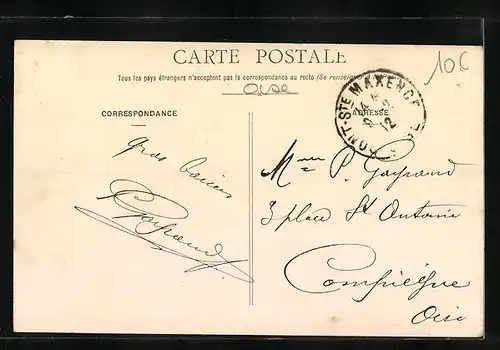 CARTE POSTALE
Tous les pays étrangers n'acceptent pas la correspondance au recto (Se renseigner
Oise
10C
PONT-STE MAXENCE
2
12
CORRESPONDANCE
ADRESSE
Gros baisers
Mme P. Gayraud
3 place St Antoine
Compiègne
Oise